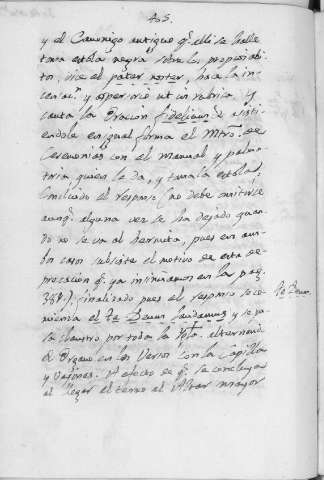 405.
y el Canonigo antiguo q.e alli se halle
toma estola negra sobre los propios abi-
tos, dice el pater noster, hace la in-
censac.n y aspersorio ut in rubrica, y
canta la oracion fidelium &c asisti-
endole en igual forma el Mtro. de
Ceremonias con el Manual y palma-
toria quien le da, y toma la estola,
concluido el responso (no debe omitirse
aunq.e alguna vez se ha dejado quan-
do no se va al hermita, pues en am-
bos casos subsiste el motivo de esta de-
precacion q.e ya insinuamos en las pag.
384.) finalizado pues el responso se co-
mienza el Te Deum laudamus y se va
la claustro por toda la Ygl.a alternando
el Organo en los Versos con la Capilla
y A efecto de q.e se concluyan
al llegar el terno al Altar mayor
Te Deum.